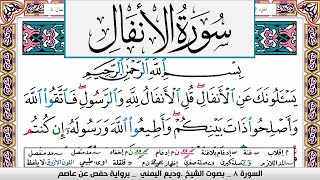 سُورَةُ الأَنفَالِ
بِسْمِ اللَّهِ الرَّحْمَٰنِ الرَّحِيمِ
يَسْـَٔلُونَكَ عَنِ ٱلْأَنفَالِ ۖ قُلِ ٱلْأَنفَالُ لِلَّهِ وَٱلرَّسُولِ ۖ فَٱتَّقُوا۟ ٱللَّهَ
وَأَصْلِحُوا۟ ذَاتَ بَيْنِكُمْ ۖ وَأَطِيعُوا۟ ٱللَّهَ وَرَسُولَهُۥٓ إِن كُنتُم
السورة ٨ . بصوت الشيخ .وديع اليمني . برواية حفص عن عاصم